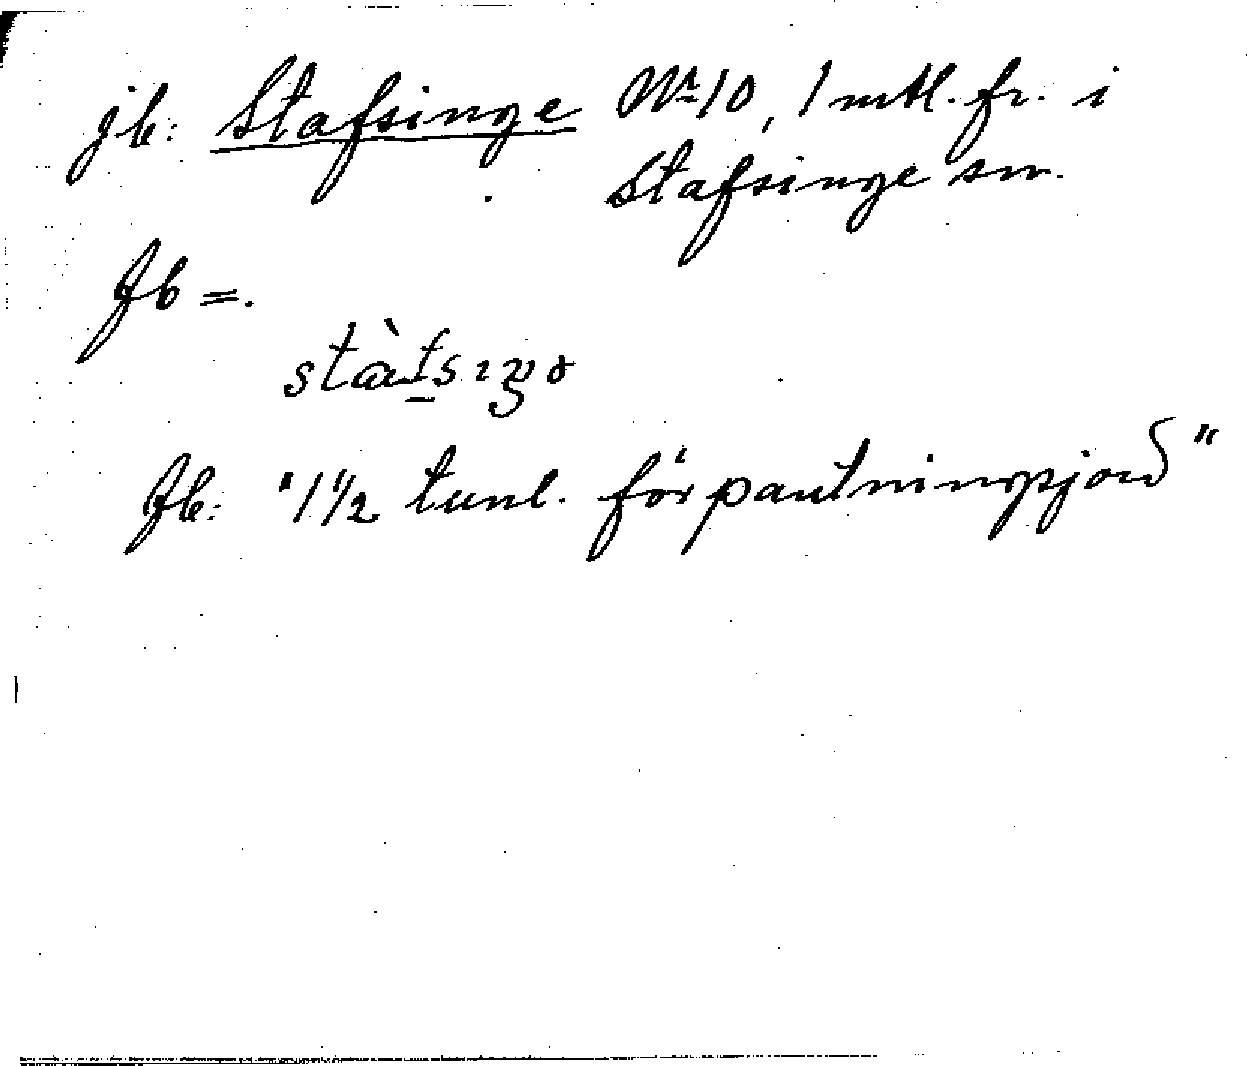 jb: Stafsinge Nr 10, 1 mtl. fr. i
Stafsinge sn.
Jb =.
Jb: "1 1/2 tunl. förpantningsjord"